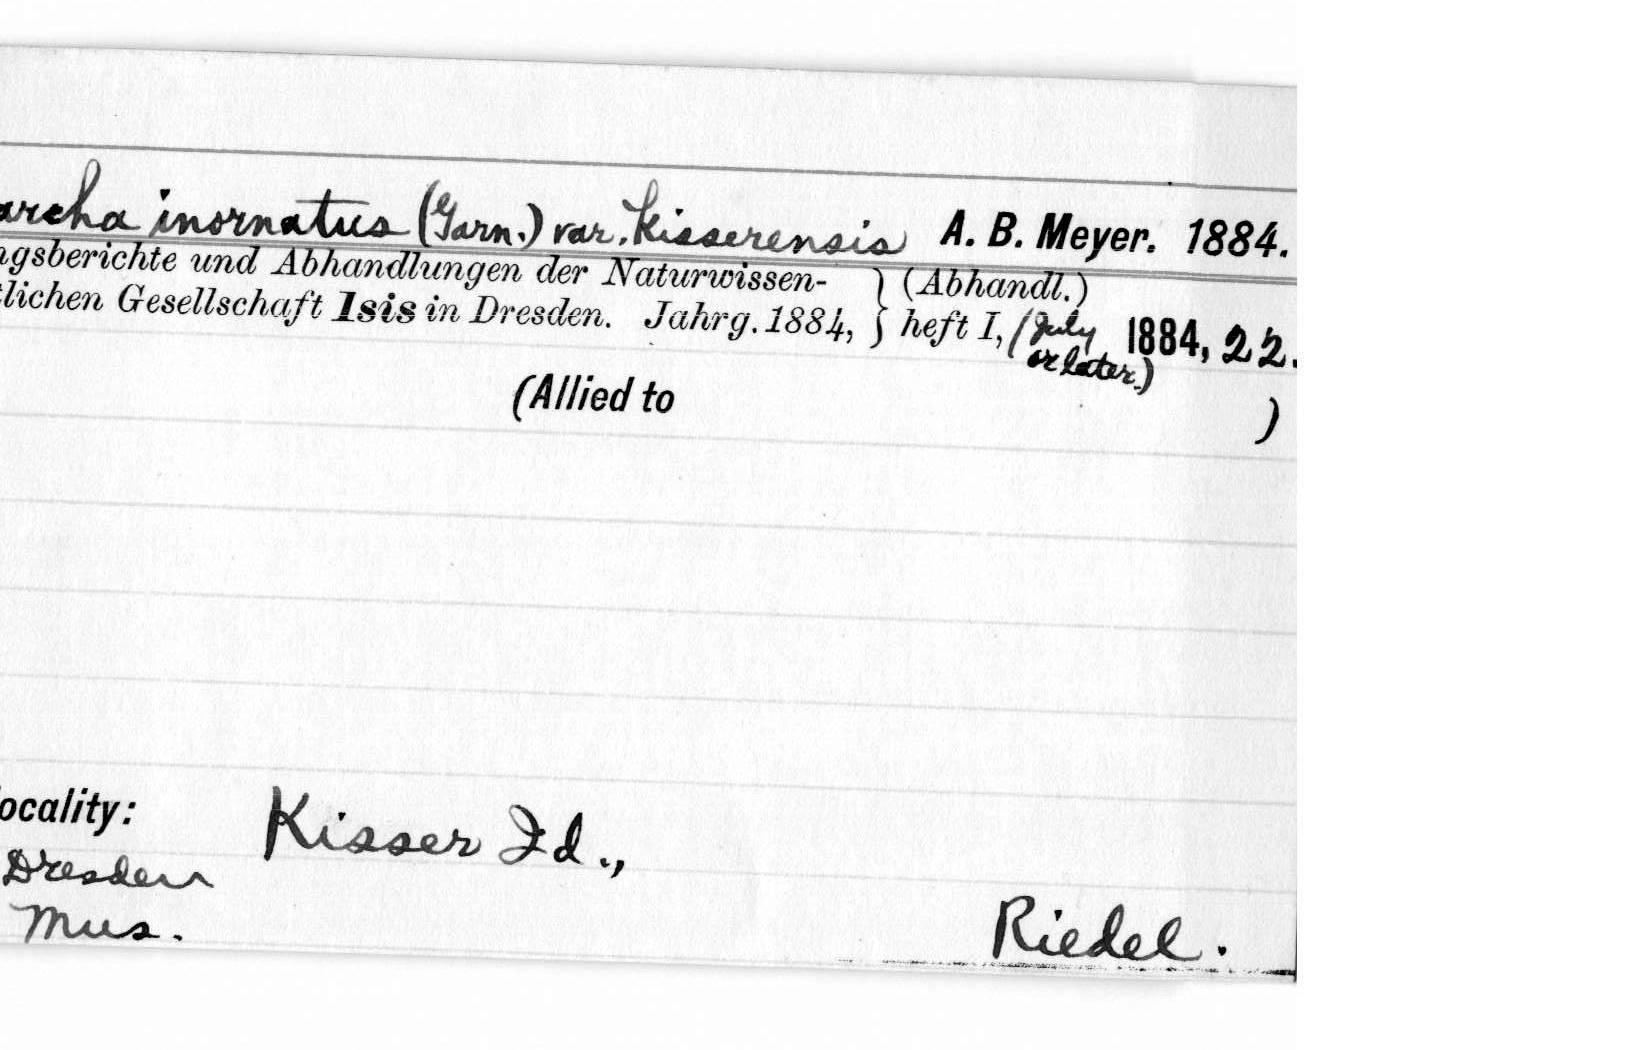 archa inornatus (Garn.) var. Kisserensis A. B. Meyer. 1884.
ngsberichte und Abhandlungen der Naturwissen- } (Abhandl.)
tlichen Gesellschaft Isis in Dresden. Jahrg. 1884, } heft I, (July or later.) 1884, 22.
(Allied to )
locality: Kisser Id.,
Dresden
Mus.
Riedel.